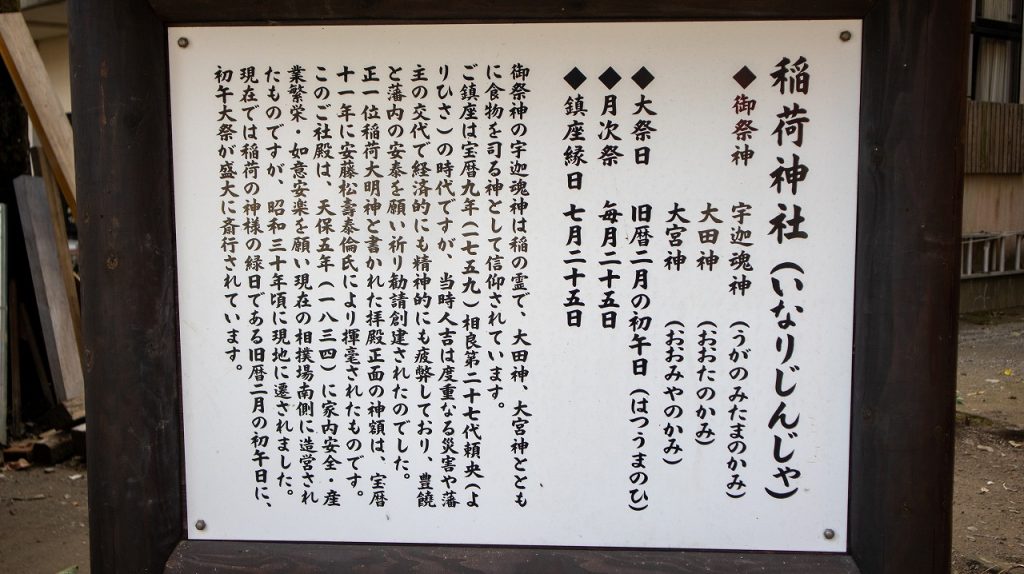 稲荷神社（いなりじんじゃ）
◆御祭神　宇迦魂神（うがのみたまのかみ）
大田神（おおたのかみ）
大宮神（おおみやのかみ）
◆大祭日　旧暦二月の初午日（はつうまのひ）
◆月次祭　毎月二十五日
◆鎮座縁日　七月二十五日
御祭神の宇迦魂神は稲の霊で、大田神、大宮神ととも
に食物を司る神として信仰されています。
ご鎮座は宝暦九年（一七五九）相良第二十七代頼央（よ
りひさ）の時代ですが、当時人吉は度重なる災害や藩
主の交代で経済的にも精神的にも疲弊しており、豊饒
と藩内の安泰を願い祈り勧請創建されたのでした。
正一位稲荷大明神と書かれた拝殿正面の神額は、宝暦
十一年に安藤松壽泰倫氏により揮毫されたものです。
このご社殿は、天保五年（一八三四）に家内安全・産
業繁栄・如意安楽を願い現在の相撲場南側に造営され
たものですが、昭和三十年頃に現地に遷されました。
現在では稲荷の神様の縁日である旧暦二月の初午日に、
初午大祭が盛大に斎行されています。